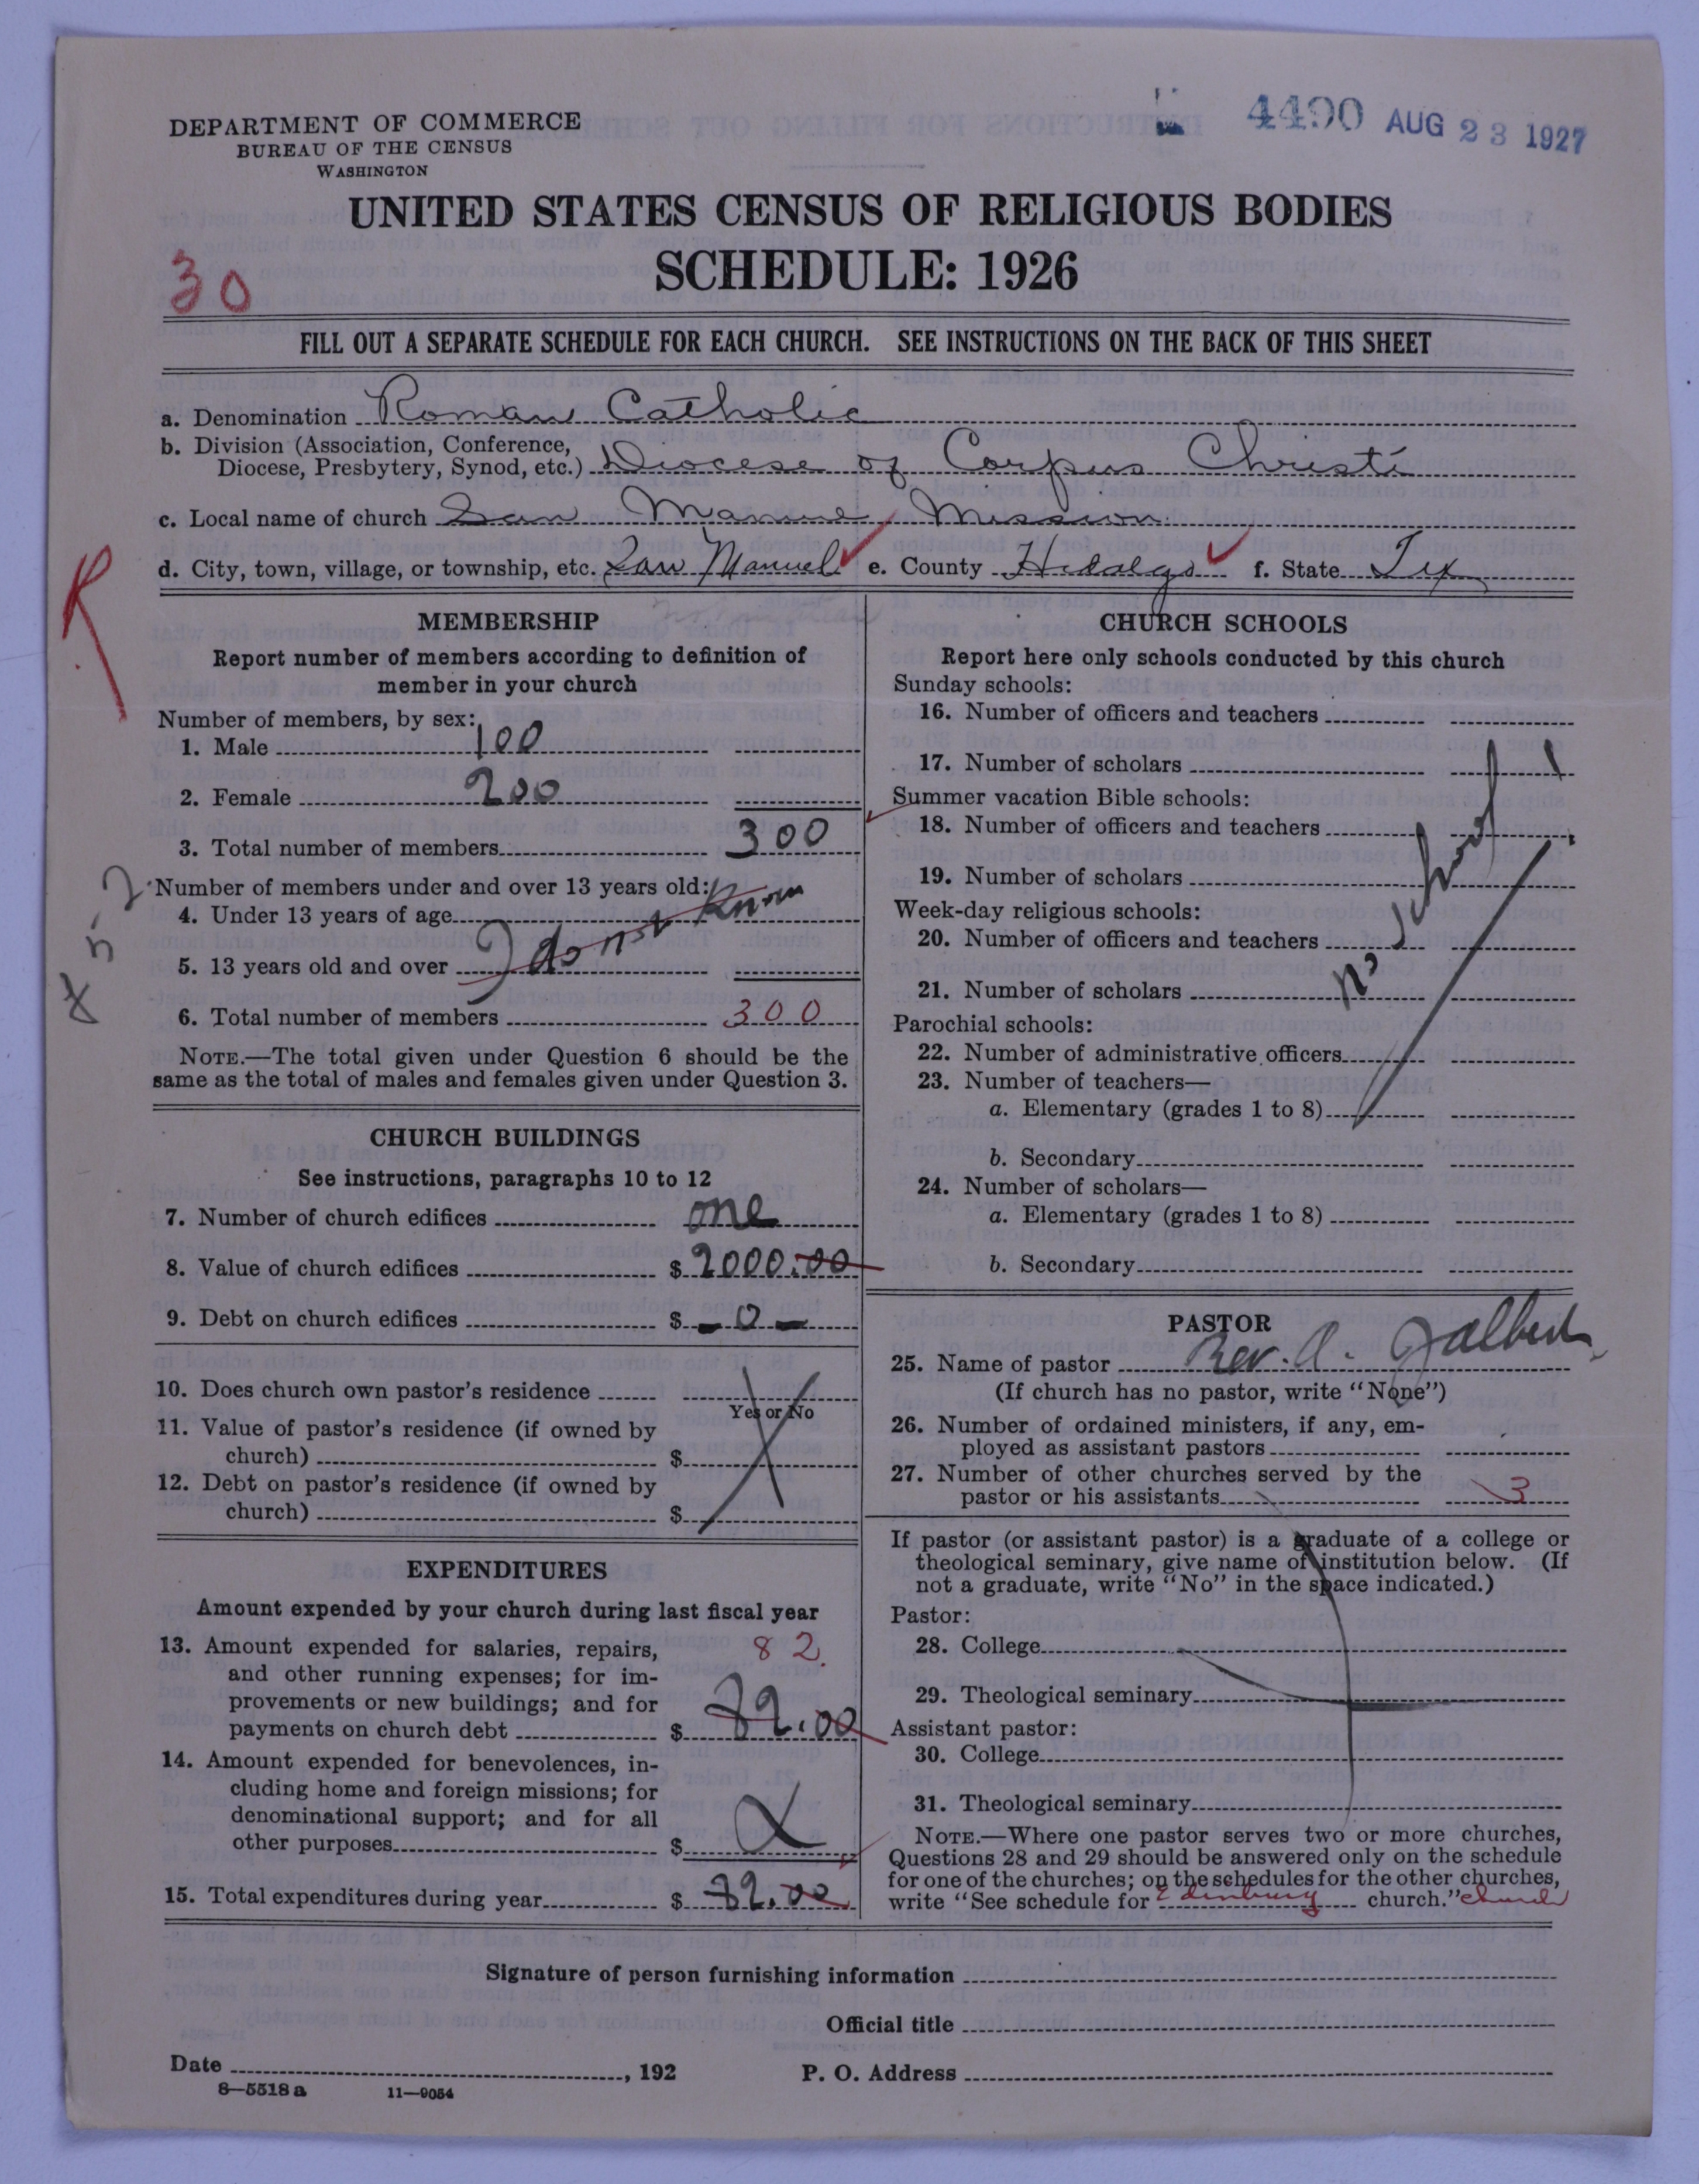 4490 AUG 23 1927
DEPARTMENT OF COMMERCE
BUREAU OF THE CENSUS
WASHINGTON
UNITED STATES CENSUS OF RELIGIOUS BODIES
SCHEDULE: 1926
30
FILL OUT A SEPARATE SCHEDULE FOR EACH CHURCH. SEE INSTRUCTIONS ON THE BACK OF THIS SHEET
a. Denomination Roman Catholic
b. Division (Association, Conference,
Diocese, Presbytery, Synod, etc.) Diocese of Corpus Christi
c. Local name of church San Manuel Mission
d. City, town, village, or township, etc. San Manuel e. County Hidalgo f. State Tex
R
MEMBERSHIP
Report number of members according to definition of
member in your church
Number of members, by sex:
1. Male 100
2. Female 200
3. Total number of members 300
Number of members under and over 13 years old:
4. Under 13 years of age
5. 13 years old and over I don't know
6. Total number of members 300
NOTE.—The total given under Question 6 should be the
same as the total of males and females given under Question 3.
CHURCH BUILDINGS
See instructions, paragraphs 10 to 12
7. Number of church edifices one
8. Value of church edifices $ 2000.00
9. Debt on church edifices $ - 0 -
10. Does church own pastor's residence
Yes or No
11. Value of pastor's residence (if owned by
church) $
12. Debt on pastor's residence (if owned by
church) $
EXPENDITURES
Amount expended by your church during last fiscal year
13. Amount expended for salaries, repairs, 82.
and other running expenses; for im-
provements or new buildings; and for
payments on church debt $ 82.00
14. Amount expended for benevolences, in-
cluding home and foreign missions; for
denominational support; and for all
other purposes $ X
15. Total expenditures during year $ 82.00
CHURCH SCHOOLS
Report here only schools conducted by this church
Sunday schools:
16. Number of officers and teachers
17. Number of scholars
Summer vacation Bible schools:
18. Number of officers and teachers
19. Number of scholars
Week-day religious schools:
20. Number of officers and teachers
21. Number of scholars
no school
Parochial schools:
22. Number of administrative officers
23. Number of teachers—
a. Elementary (grades 1 to 8)
b. Secondary
24. Number of scholars—
a. Elementary (grades 1 to 8)
b. Secondary
PASTOR
25. Name of pastor Rev. A. Jalbert
(If church has no pastor, write "None")
26. Number of ordained ministers, if any, em-
ployed as assistant pastors
27. Number of other churches served by the
pastor or his assistants 3
If pastor (or assistant pastor) is a graduate of a college or
theological seminary, give name of institution below. (If
not a graduate, write "No" in the space indicated.)
Pastor:
28. College
29. Theological seminary
Assistant pastor:
30. College
31. Theological seminary
NOTE.—Where one pastor serves two or more churches,
Questions 28 and 29 should be answered only on the schedule
for one of the churches; on the schedules for the other churches,
write "See schedule for Edinburg church." church
Signature of person furnishing information
Official title
Date , 192 P. O. Address
8—5518 a 11—9054